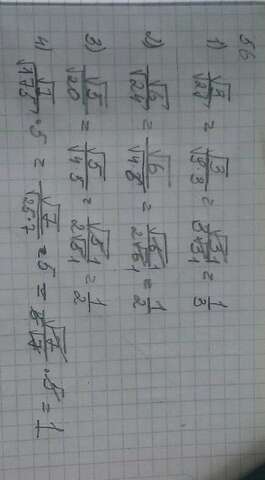 56
1) √3/√27 = √3/√9·3 = √3/3√3 = 1/3
2) √6/√24 = √6/√4·6 = √6/2√6 = 1/2
3) √5/√20 = √5/√4·5 = √5/2√5 = 1/2
4) √7/√175 · 5 = √7/√25·7 · 5 = √7/5√7 · 5 = 1